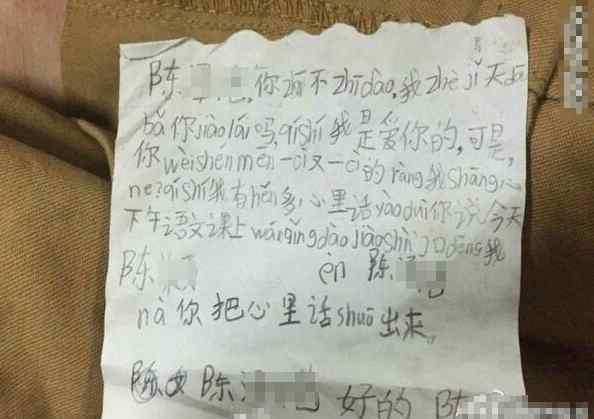 陈 你zhī不zhīdào,我zhèjǐ天dū
bǎ你jiàolái吗,qíshí我是爱你的,可是,
你wèishénmen一次又一次的ràng我shāng心
ne?qíshí我有hěn多心里话yàoduì你说今天
下午语文课上wánqǐngdàojiàoshì门口děng我
陈 èn 陈
nà你把心里话shuō出来
陈 好的 陈